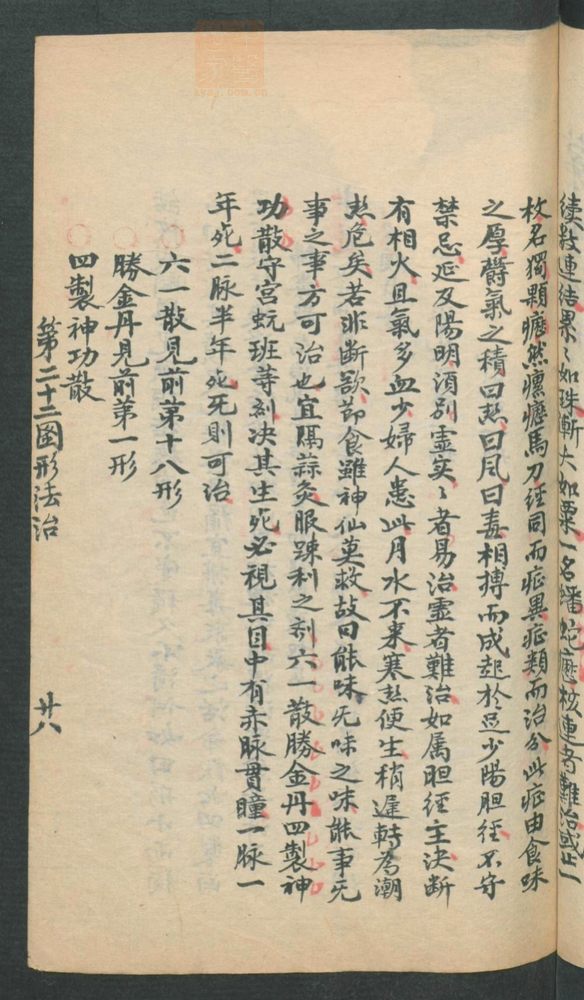 續數連結累々如珠漸大如栗一名蟠蛇癧核連者難治或止一
枚名獨顆癧然瘰癧馬刀經同而症異症類而治分此症由食味
之厚欝氣之積曰热曰风曰毒相搏而成起於足少陽胆径不守
禁忌延及陽明須別虚实々者易治虚者難治如属胆径主决断
有相火且氣多血少婦人患此月水不来寒热便生稍遲轉為潮
热危矣若非断欲節食雖神仙莫救故曰能味无味之味能事无
事之事方可治也宜隔蒜灸服踈利之剂六一散勝金丹四製神
功散守宫蚖班等剂决其生死必視其目中有赤脉貫瞳一脉一
年死二脉半年死死則可治
六一散見前第十八形
勝金丹見前第一形
四製神功散
第二十二图形法治
廿八